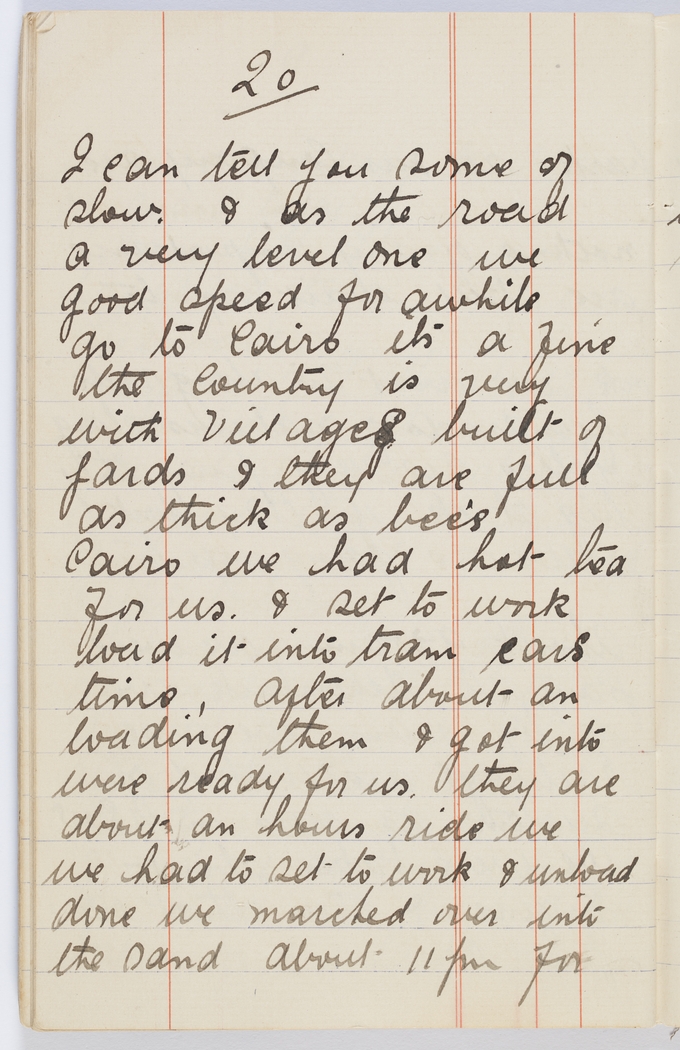 20
I can tell you some of
slow. & as the road
a very level one we
good speed for awhile
go to Cairo its a fine
the Country is very
with Villages built of
fards & they are full
as thick as bee's
Cairo we had hot tea
for us. & set to work
load it into tram cars
time, after about an
loading them & got into
were ready for us. they are
about an hours ride we
we had to set to work & unload
done we marched over into
the sand about 11 pm for